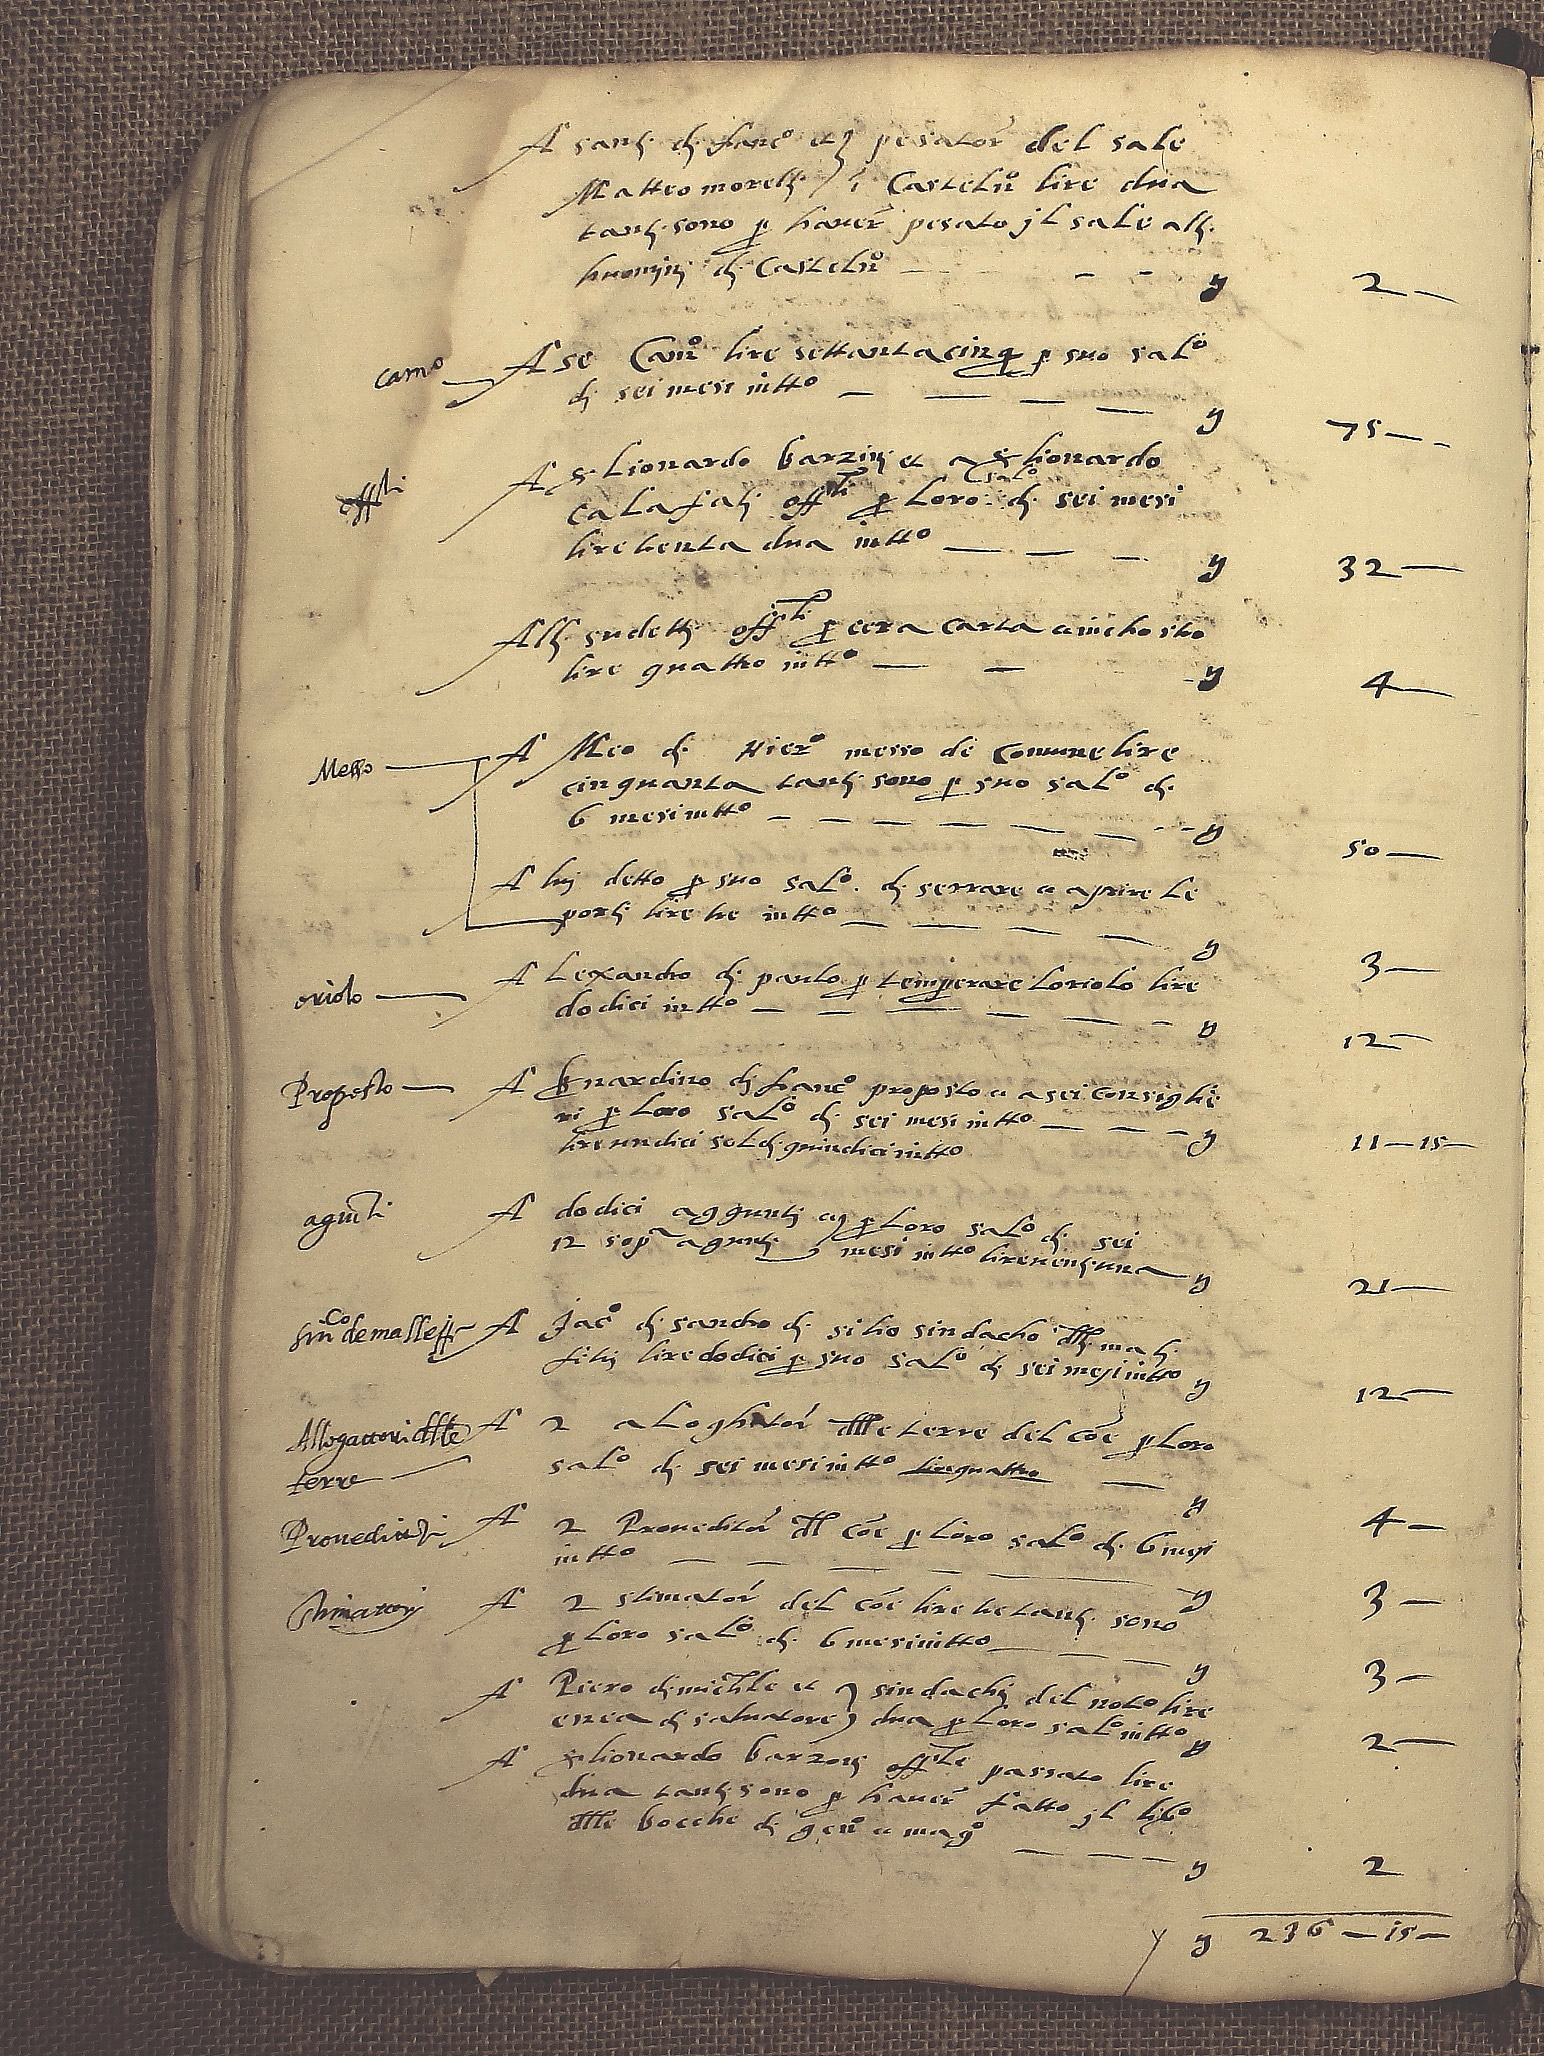 A santi di franco et } pesatori del sale
Matteo morelli } i Casteln° lire dua
tanti sono p haver pesato jl sale alli
huomini di Casteln°
y 2
camo A se Cam° lire settantacinq p suo sal°
di sei mesi intto
y 75
offli A s. Lionardo barzini et a s. lionardo
Calafati offli p loro sal° di sei mesi
lire trenta dua intto
y 32
Alli sudetti offli p cera carta e inchostro
lire quattro intto
y 4
Messo A Meo di Hier° messo de Comune lire
cinquanta tanti sono p suo sal° di
6 mesi intto y
50
A lui detto p suo sal° di serrare e aprire le
porti lire tre intto
y 3
oriolo A Lexandro di paulo p temperare loriolo lire
dodici intto
y 12
Proposto A Bnardino di franc° proposto e a sei consiglie
ri p loro sal° di sei mesi intto
lire undici soldi quindici intto y 11 15
agiuti A dodici aggiunti e p loro sal° di sei
12 sop agiunti mesi intto lire ventiuna
y 21
sinco de mallefi A Jac° di sandro di silio sindacho delli mali
fitii lire dodici p suo sal° di sei mesi intto
y 12
Allogattori delle A 2 aloghatori delle terre del coe p loro
terre sal° di sei mesi intto lire quattro
y 4
Proveditori A 2 Proveditori del coe p loro sal° di 6 mesi
intto
y 3
Stimatori A 2 stimatori del coe lire tre tanti sono
p loro sal° di 6 mesi intto
y 3
A Piero di michele et } sindachi del noto lire
enea di salvatore } dua p loro sal° intto y 2
A s. lionardo barzoni offle passato lire
dua tanti sono p haver fatto jl libo
delle bocche di gen° e mag°
y 2
y 236 15